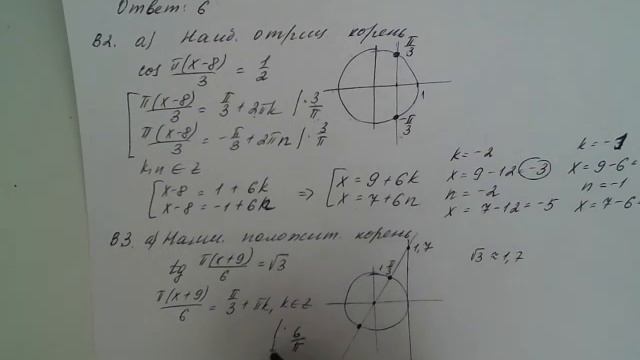 Ответ: 6
B2. а) Наиб. отриц корень
cos π(x-8)/3 = 1/2
π(x-8)/3 = π/3 + 2πk | · 3/π
π(x-8)/3 = -π/3 + 2πn | · 3/π
k,n ∈ Z
x-8 = 1 + 6k
x-8 = -1 + 6n
=> x = 9 + 6k
x = 7 + 6n
π/3
1
-π/3
k = -2
x = 9 - 12 = -3
n = -2
x = 7 - 12 = -5
k = -1
x = 9 - 6 =
n = -1
x = 7 - 6 =
B3. а) Наим. положит корень
tg π(x+9)/6 = √3
π(x+9)/6 = π/3 + πk, k ∈ Z
| · 6/π
1,7
π/3
√3 ≈ 1,7